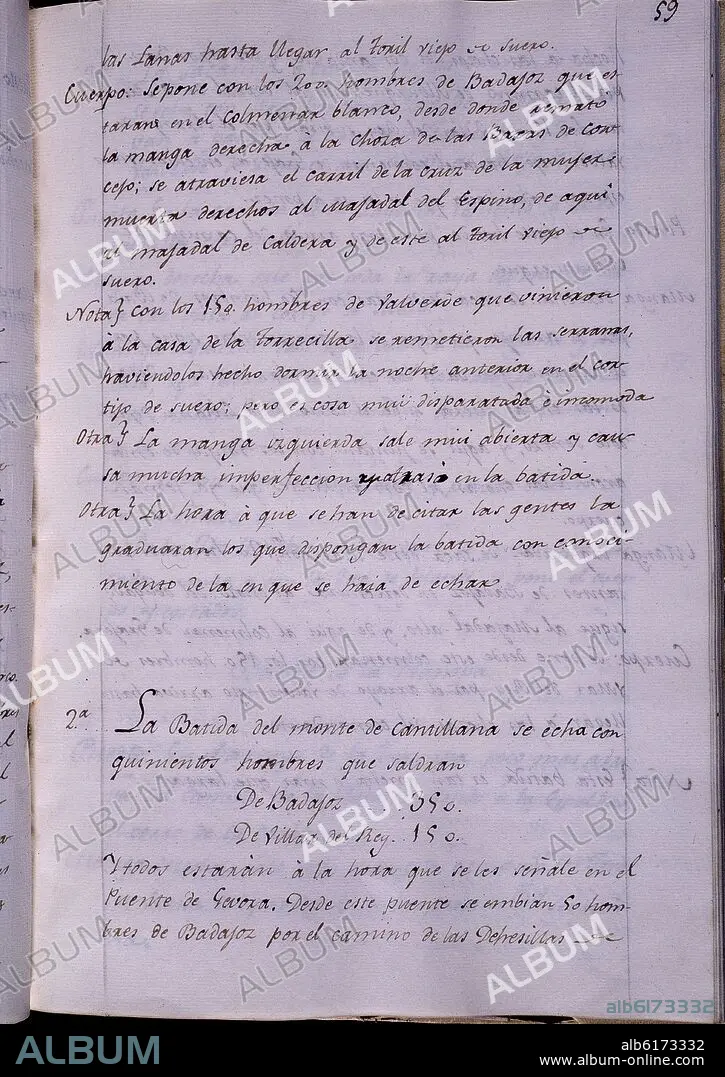 59
las Lanas hasta llegar al Toril viejo de suero.
Cuerpo: Se pone con los 200. hombres de Badajoz que es-
taran en el Colmenar blanco, desde donde remató
la manga derecha à la Choza de las Baras de Con-
cejo; se atraviesa el carril de la Cruz de la mujer
muerta derechos al Majadal del Espino, de aqui
al majadal de Caldera y de este al Toril viejo de
suero.
Nota} Con los 150. hombres de Valverde que vinieron
à la casa de la Torrecilla se remetieron las serranas,
haviendolos hecho dormir la noche anterior en el cor-
tijo de suero; pero es cosa mui disparatada è incomoda
Otra} La manga izquierda sale mui abierta y cau-
sa mucha imperfeccion y atraso en la batida.
Otra} La hora à que se han de citar las gentes la
graduaran los que dispongan la batida con conoci-
miento de la en que se haia de echar
2.ª La Batida del monte de Cantillana se echa con
quinientos hombres que saldran
De Badajoz ... 350.
De Villar del Rey. 150.
Y todos estaràn à la hora que se les señale en el
Puente de Gevora. Desde este puente se embian 50 hom-
bres de Badajoz por el camino de las Dehesillas de
ALBUM
alb6173332
ALBUM
alb6173332
www.album-online.com